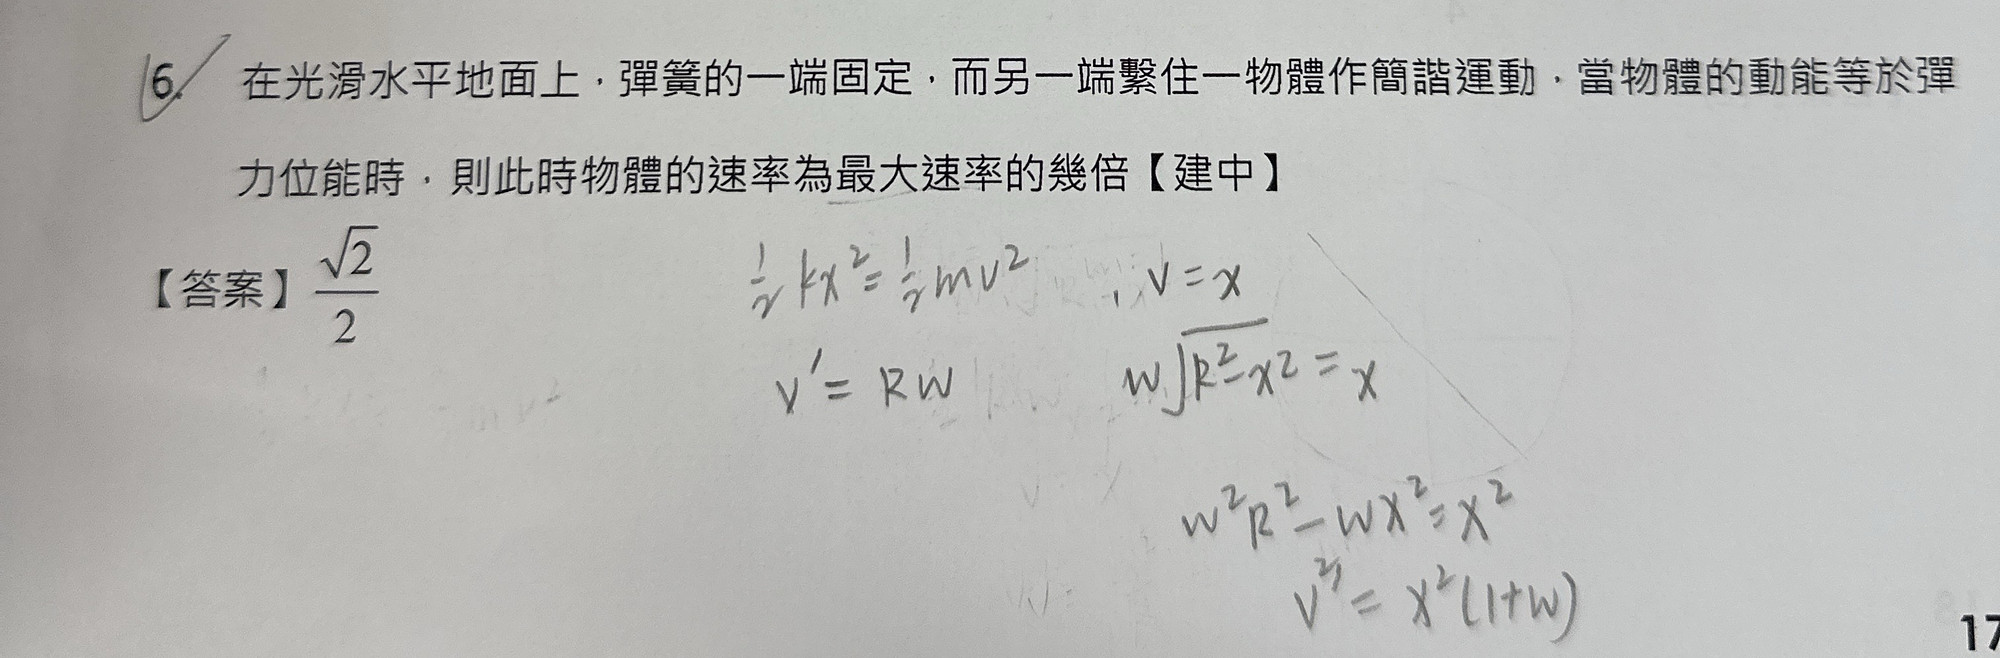 6. 在光滑水平地面上，彈簧的一端固定，而另一端繫住一物體作簡諧運動，當物體的動能等於彈
力位能時，則此時物體的速率為最大速率的幾倍【建中】
【答案】√2/2
1/2 kx² = 1/2 mv² , v = x
v' = RW W√(R²-x²) = x
W²R² - WX² = X²
V²' = X²(1+W)
17